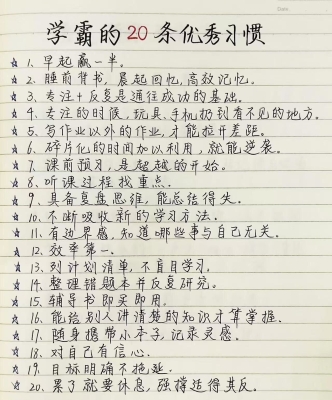 学霸的20条优秀习惯
☆ 1、早起赢一半。
☆ 2、睡前背书，晨起回忆，高效记忆。
☆ 3、专注+反复是通往成功的基础。
☆ 4、专注的时候，玩具、手机扔到看不见的地方。
☆ 5、写作业以外的作业，才能拉开差距。
☆ 6、碎片化的时间加以利用，就能逆袭。
☆ 7、课前预习，是超越的开始。
☆ 8、听课过程找重点.
☆ 9、具备复盘思维，能总结得失。
☆ 10、不断吸收新的学习方法.
☆ 11、有边界感，知道哪些事与自己无关.
☆ 12、效率第一.
☆ 13、列计划清单，不盲目学习.
☆ 14、整理错题本并反复研究.
☆ 15、辅导书即买即用.
☆ 16、能给别人讲清楚的知识才算掌握.
☆ 17、随身携带小本子，记录灵感.
☆ 18、对自己有信心.
☆ 19、目标明确不拖延.
☆ 20、累了就要休息，强撑适得其反。